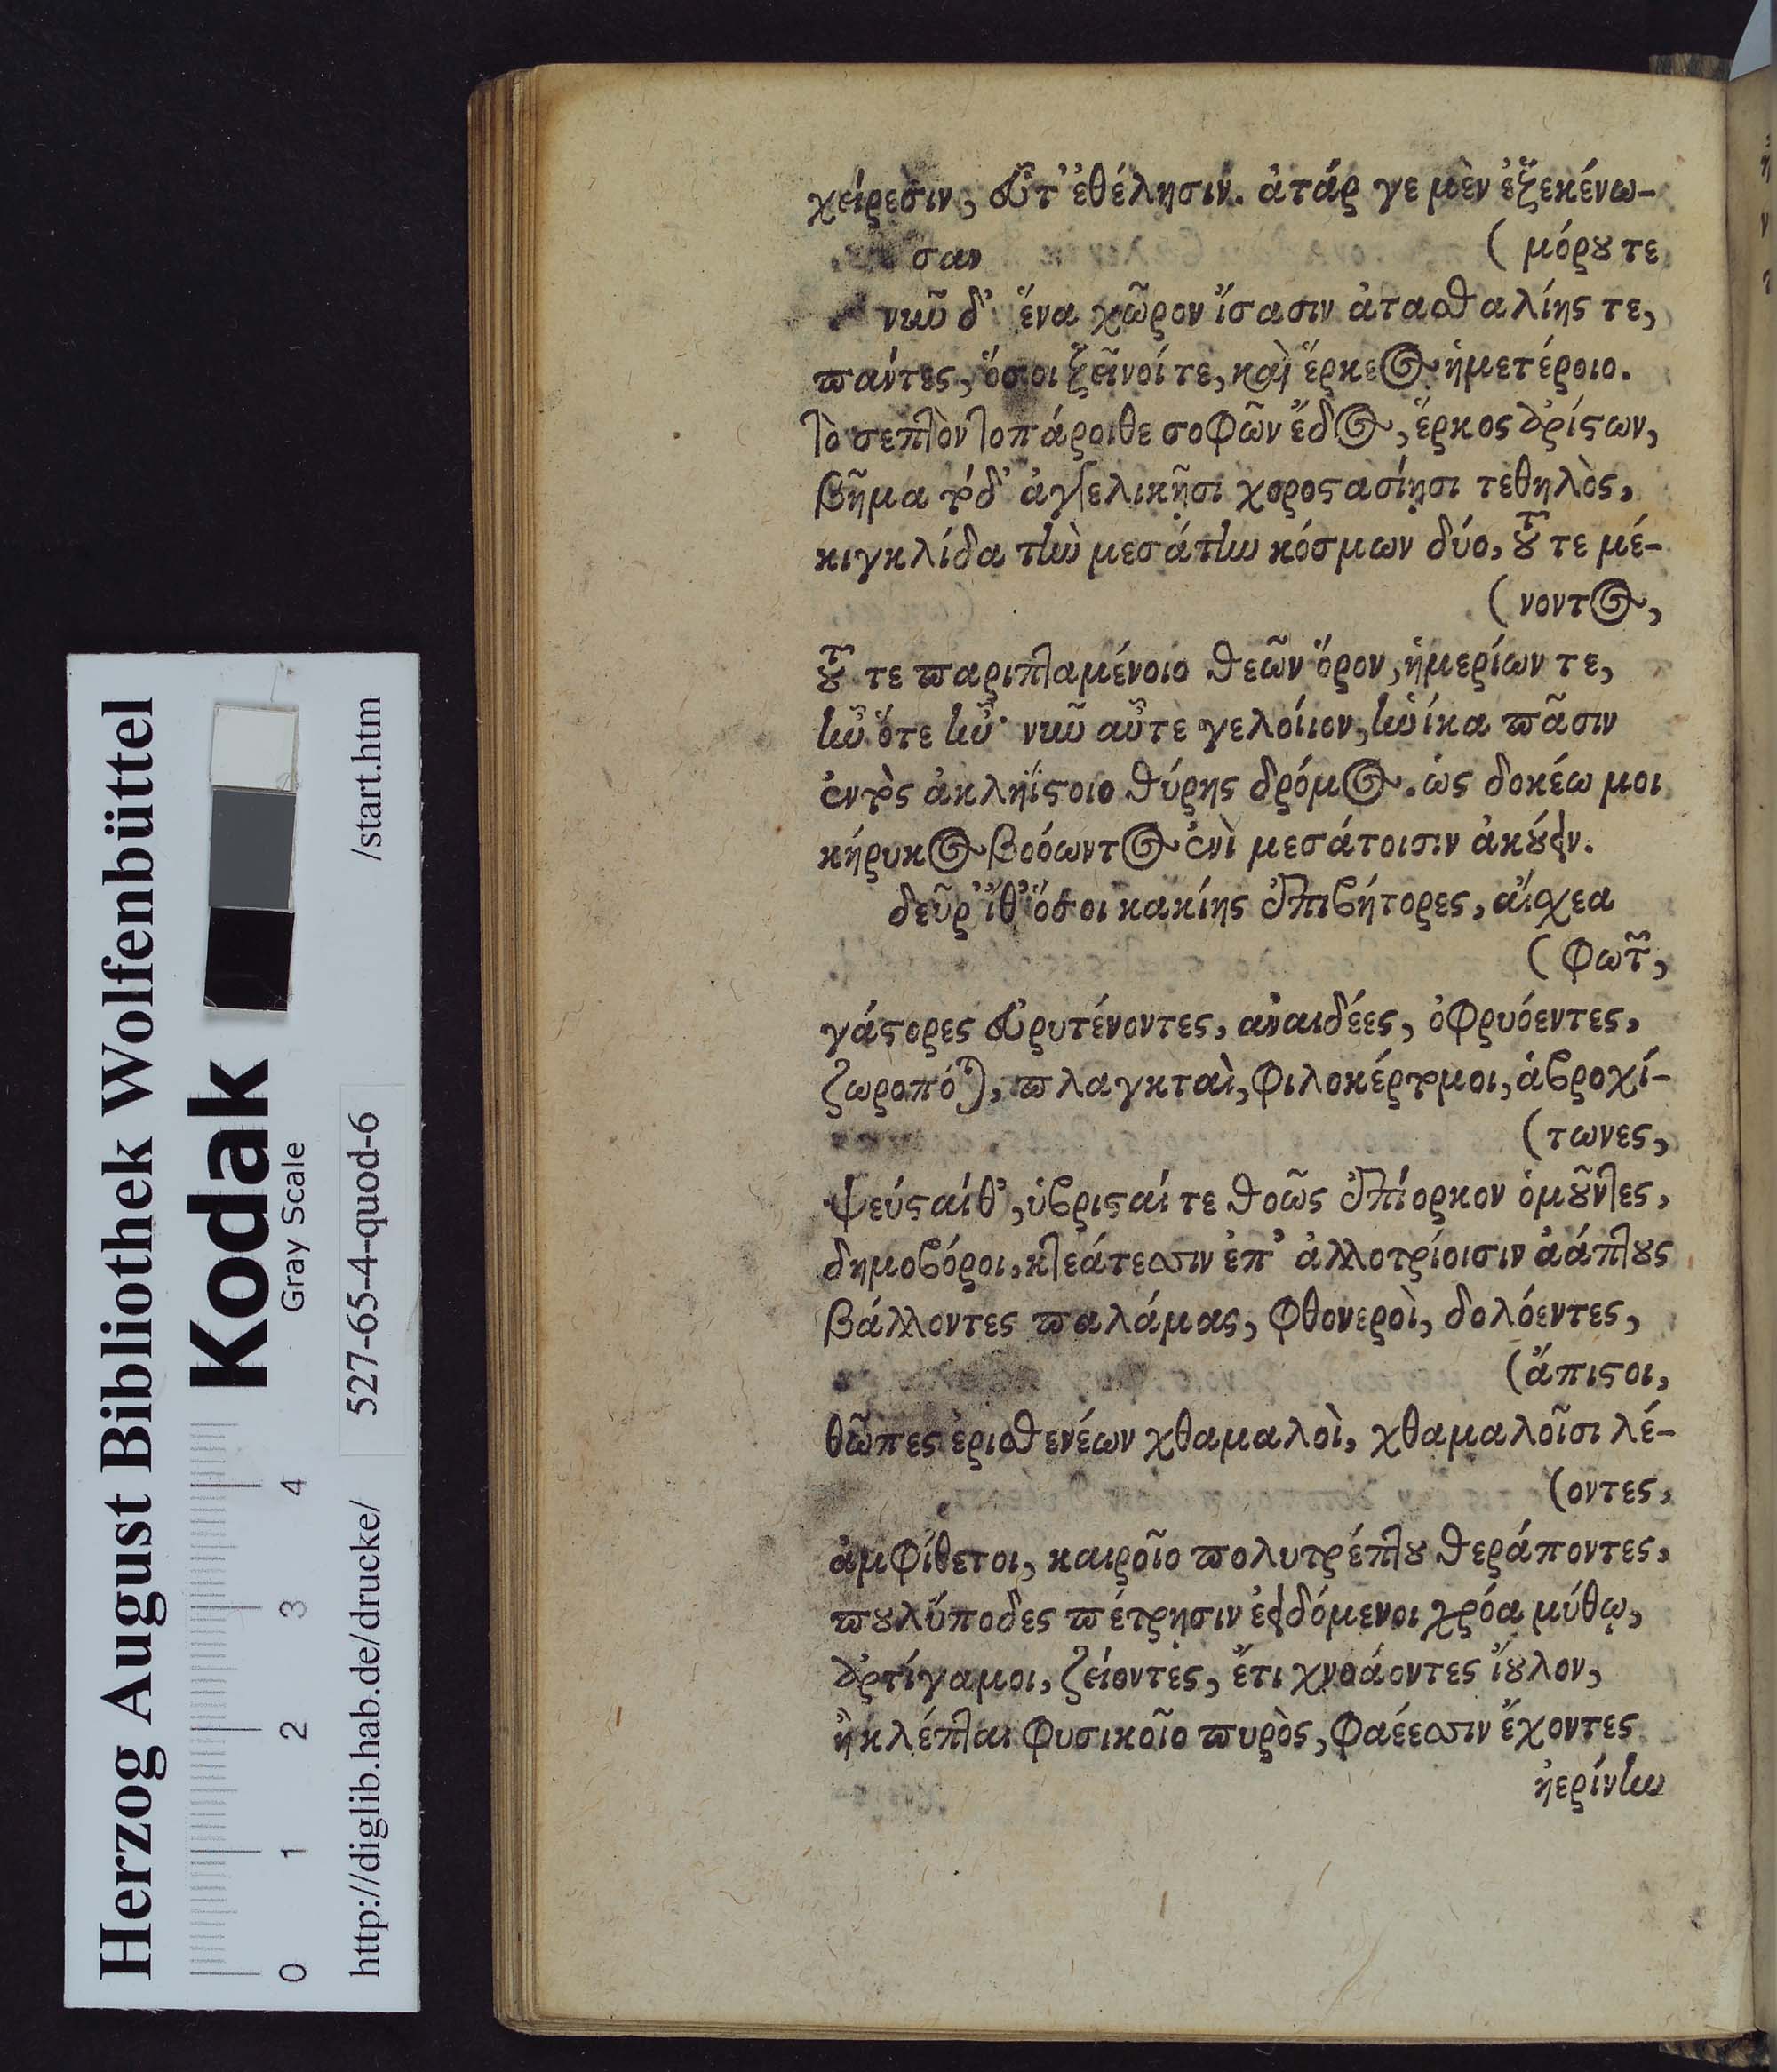 χείρεσιν, εὖτ' ἐθέλησιν. ἀτάρ γε μὲν ἐξεκένω-
σαν (μόρου τε
νῦν δ' ἕνα χῶρον ἴσασιν ἀτασθαλίης τε,
πάντες, ὅσοι ξεῖνοί τε, καὶ ἕρκεος ἡμετέροιο.
τὸ σεπτὸν τοπάροιθε σοφῶν ἕδος, ἕρκος ἀρίστων,
βῆμα τόδ' ἀγγελικῇσι χοροστασίῃσι τεθηλὸς,
κιγκλίδα τὴν μεσάτην κόσμων δύο, τοῦ τε μέ-
(νοντος,
τοῦ τε παριπταμένοιο θεῶν ὅρον, ἡμερίων τε,
ἦν ὅτε ἦν· νῦν αὖτε γελοίιον, ἡνίκα πᾶσιν
ἐντὸς ἀκληΐστοιο θύρης δρόμος. ὡς δοκέω μοι
κήρυκος βοόωντος ἐνὶ μεσάτοισιν ἀκούειν.
δεῦρ' ἴθ' ὅσοι κακίης ἐπιβήτορες, αἴσχεα
(φωτῶν,
γάστορες εὐρυτένοντες, ἀναιδέες, ὀφρυόεντες,
ζωροπόται, πλαγκταὶ, φιλοκέρτομοι, ἁβροχί-
(τωνες,
ψεύσταί θ', ὑβρισταί τε θοῶς ἐπίορκον ὀμοῦντες,
δημοβόροι, κτεάτεσσιν ἐπ' ἀλλοτρίοισιν ἀάπτους
βάλλοντες παλάμας, φθονεροὶ, δολόεντες,
(ἄπιστοι,
θῶπες ἐρισθενέων χθαμαλοὶ, χθαμαλοῖσι λέ-
(οντες,
ἀμφίθετοι, καιροῖο πολυτρέπτου θεράποντες,
πουλύποδες πέτρησιν ἐειδόμενοι χρόα μύθῳ,
ἀρτίγαμοι, ζείοντες, ἔτι χνοάοντες ἴουλον,
ἢ κλέπται φυσικοῖο πυρὸς, φαέεσσιν ἔχοντες
ἠερίην
Herzog August Bibliothek Wolfenbüttel
Kodak
Gray Scale
0 1 2 3 4
http://diglib.hab.de/drucke/ 527-65-4-quod-6 /start.htm